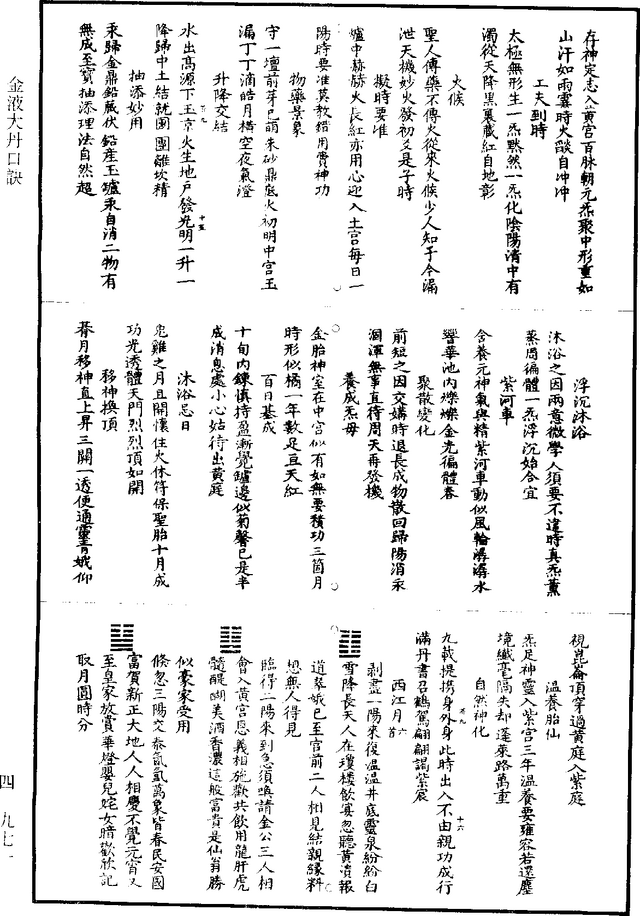 存神定志入黄宫百脉朝元炁聚中形重如
山汗如雨雲時火燄自冲冲
工夫到時
太極無形生一炁黙然一炁化陰陽清中有
濁從天降黒裏蔵紅自地彰
火候
聖人傳藥不傳火從來火候少人知于今漏
泄天機妙火發初爻是子時
擬時要准
爐中赫赫火長紅亦用心迎入土宫每日一
陽時要准莫教錯用費神功
物藥景象
守一壇前芽已萌朱砂鼎底火初明中宫玉
漏丁丁滴皓月横空夜氣澄
升降交結
水出髙源下玉京火生地戸發光明一升一
降歸中土結就團團離坎精
抽添妙用
汞歸金鼎鉛蔵伏鉛産玉爐汞自消二物有
無成至寳抽添理法自然超
浮沉沐浴
沐浴之因兩意微學人須要不違時真炁薰
蒸周徧體一炁浮沉始合宜
紫河車
含養元神氣與精紫河車動似風輪潺潺水
響華池内爍爍金光徧體春
聚散變化
前短之因交媾時退長成物散回歸陽涓汞
涸渾無事直待周天再發機
養成炁母
金胎神室在中宫似有如無要積功三箇月
時形似橘一年數足亘天紅
百日基成
十旬内鍊慎持盈漸覺鑪邊似菊馨已是半
成消息處小心姑待出黄庭
沐浴忌日
兎雞之月且開懷住火休符保聖胎十月成
功光透體天門烈烈頂如開
移神換頂
暮月移神直上昇三關一透便通靈青娥仰
視崑崙頂穿過黄庭入紫庭
温養胎仙
炁足神靈入紫宫三年温養要雍容若還塵
境纎毫隔失却蓬萊路萬重
自然神化
九載提携身外身此時出入不由親功成行
滿丹書召鶴駕翩翩謁紫宸
西江月 六首
剥盡一陽來復温温井底靈泉紛紛白
雪降長天人在瓊樓飲宴忽聽黄瀆報
道翠娥已至宫前二人相見結親緣料
想無人得見
臨得二陽來到急須喚請金公三人相
會入黄宫恩義相施歡共飲用龍肝虎
髓醍醐美酒香濃這般富貴是仙翁勝
似豪家受用
倏忽三陽交泰氤氲萬象皆春民安國
富賀新正大地人人相慶不覺元宵又
至皇家放賞華燈嬰兒姹女暗歡欣記
取月圓時分
金液大丹口訣
四 九七一